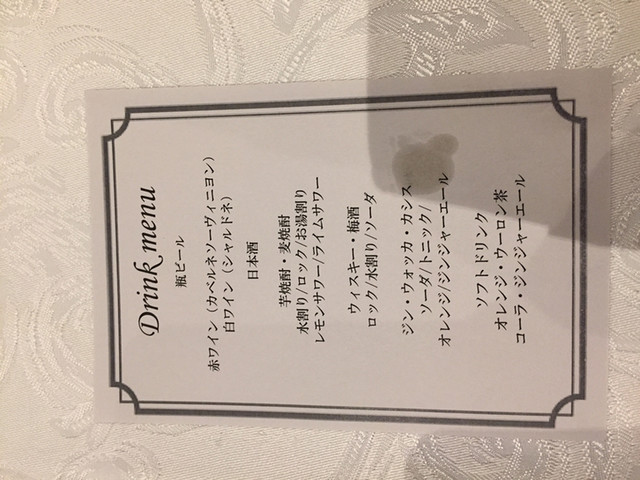 Drink menu
瓶ビール
赤ワイン（カベルネソーヴィニヨン）
白ワイン（シャルドネ）
日本酒
芋焼酎・麦焼酎
水割り/ロック/お湯割り
レモンサワー/ライムサワー
ウィスキー・梅酒
ロック/水割り/ソーダ
ジン・ウォッカ・カシス
ソーダ/トニック/
オレンジ/ジンジャーエール
ソフトドリンク
オレンジ・ウーロン茶
コーラ・ジンジャーエール